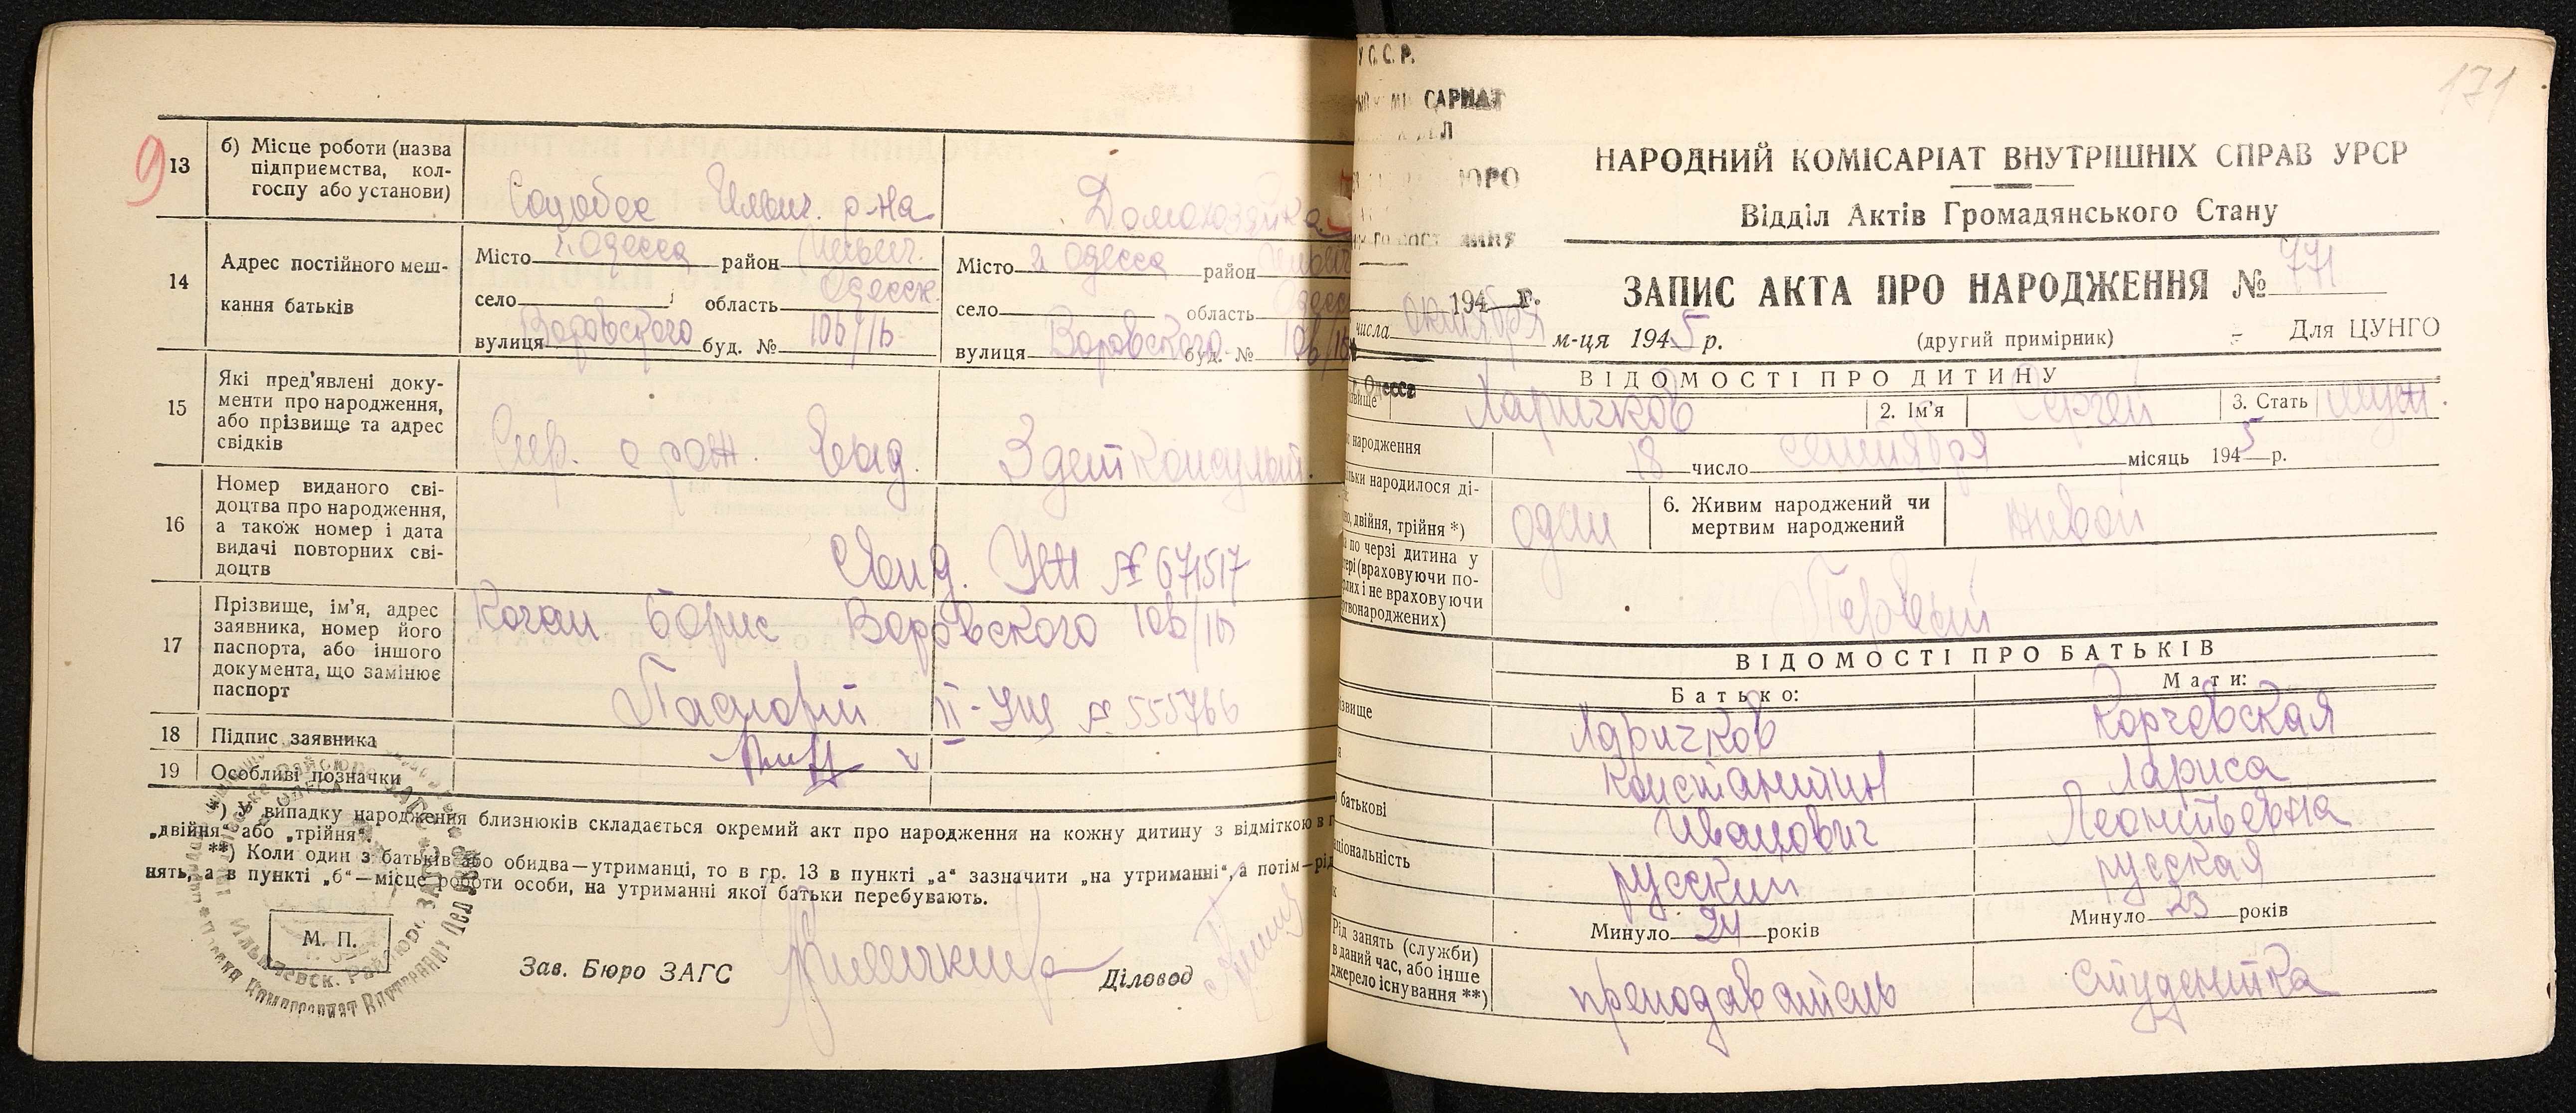 9
13
б) Місце роботи (назва
підприємства, кол-
госпу або установи)
Соцобес Ильич. р-на
Домохозяйка
14
Адрес постійного меш-
кання батьків
Місто г. Одесса район Ильич.
село область Одесск.
вулиця Воровского буд. № 106/16
Місто г. Одесса район Ильич
село область Одесс
вулиця Воровского буд. № 106/16
15
Які пред'явлені доку-
менти про народження,
або прізвище та адрес
свідків
Спр. о рож. выд.
3 дет консульт.
16
Номер виданого сві-
доцтва про народження,
а також номер і дата
видачі повторних сві-
доцтв
Свид. № 671517
17
Прізвище, ім'я, адрес
заявника, номер його
паспорта, або іншого
документа, що замінює
паспорт
Коган Борис Воровского 106/16
Паспорт № 555766
18
Підпис заявника
19
Особливі позначки
*) У випадку народження близнюків складається окремий акт про народження на кожну дитину з відміткою в г
„двійня“ або „трійня“.
**) Коли один з батьків або обидва—утриманці, то в гр. 13 в пункті „а“ зазначити „на утриманні“, а потім—рід
нять, а в пункті „б“—місце роботи особи, на утриманні якої батьки перебувають.
М. П.
Зав. Бюро ЗАГС
Діловод
171
У С. С. Р.
САРИАТ
ЮРО
НАРОДНИЙ КОМІСАРІАТ ВНУТРІШНІХ СПРАВ УРСР
Відділ Актів Громадянського Стану
ЗАПИС АКТА ПРО НАРОДЖЕННЯ № 771
194 г.
числа октября м-ця 1945 р.
(другий примірник)
Для ЦУНГО
г. Одесса
ВІДОМОСТІ ПРО ДИТИНУ
звище Ларичков
2. Ім'я Сергей
3. Стать муж.
народження
18 число сентября місяць 1945 р.
льки народилося ді-
но, двійня, трійня *)
один
6. Живим народжений чи
мертвим народжений
живой
а по черзі дитина у
тері (враховуючи по-
рлих і не враховуючи
ртвонароджених)
Первый
ВІДОМОСТІ ПРО БАТЬКІВ
Батько:
Мати:
звище
Ларичков
Корчевская
Константин
Лариса
батькові
Иванович
Леонтьевна
ціональність
русский
русская
к
Минуло 24 років
Минуло 23 років
Рід занять (служби)
в даний час, або інше
джерело існування **)
преподаватель
студентка